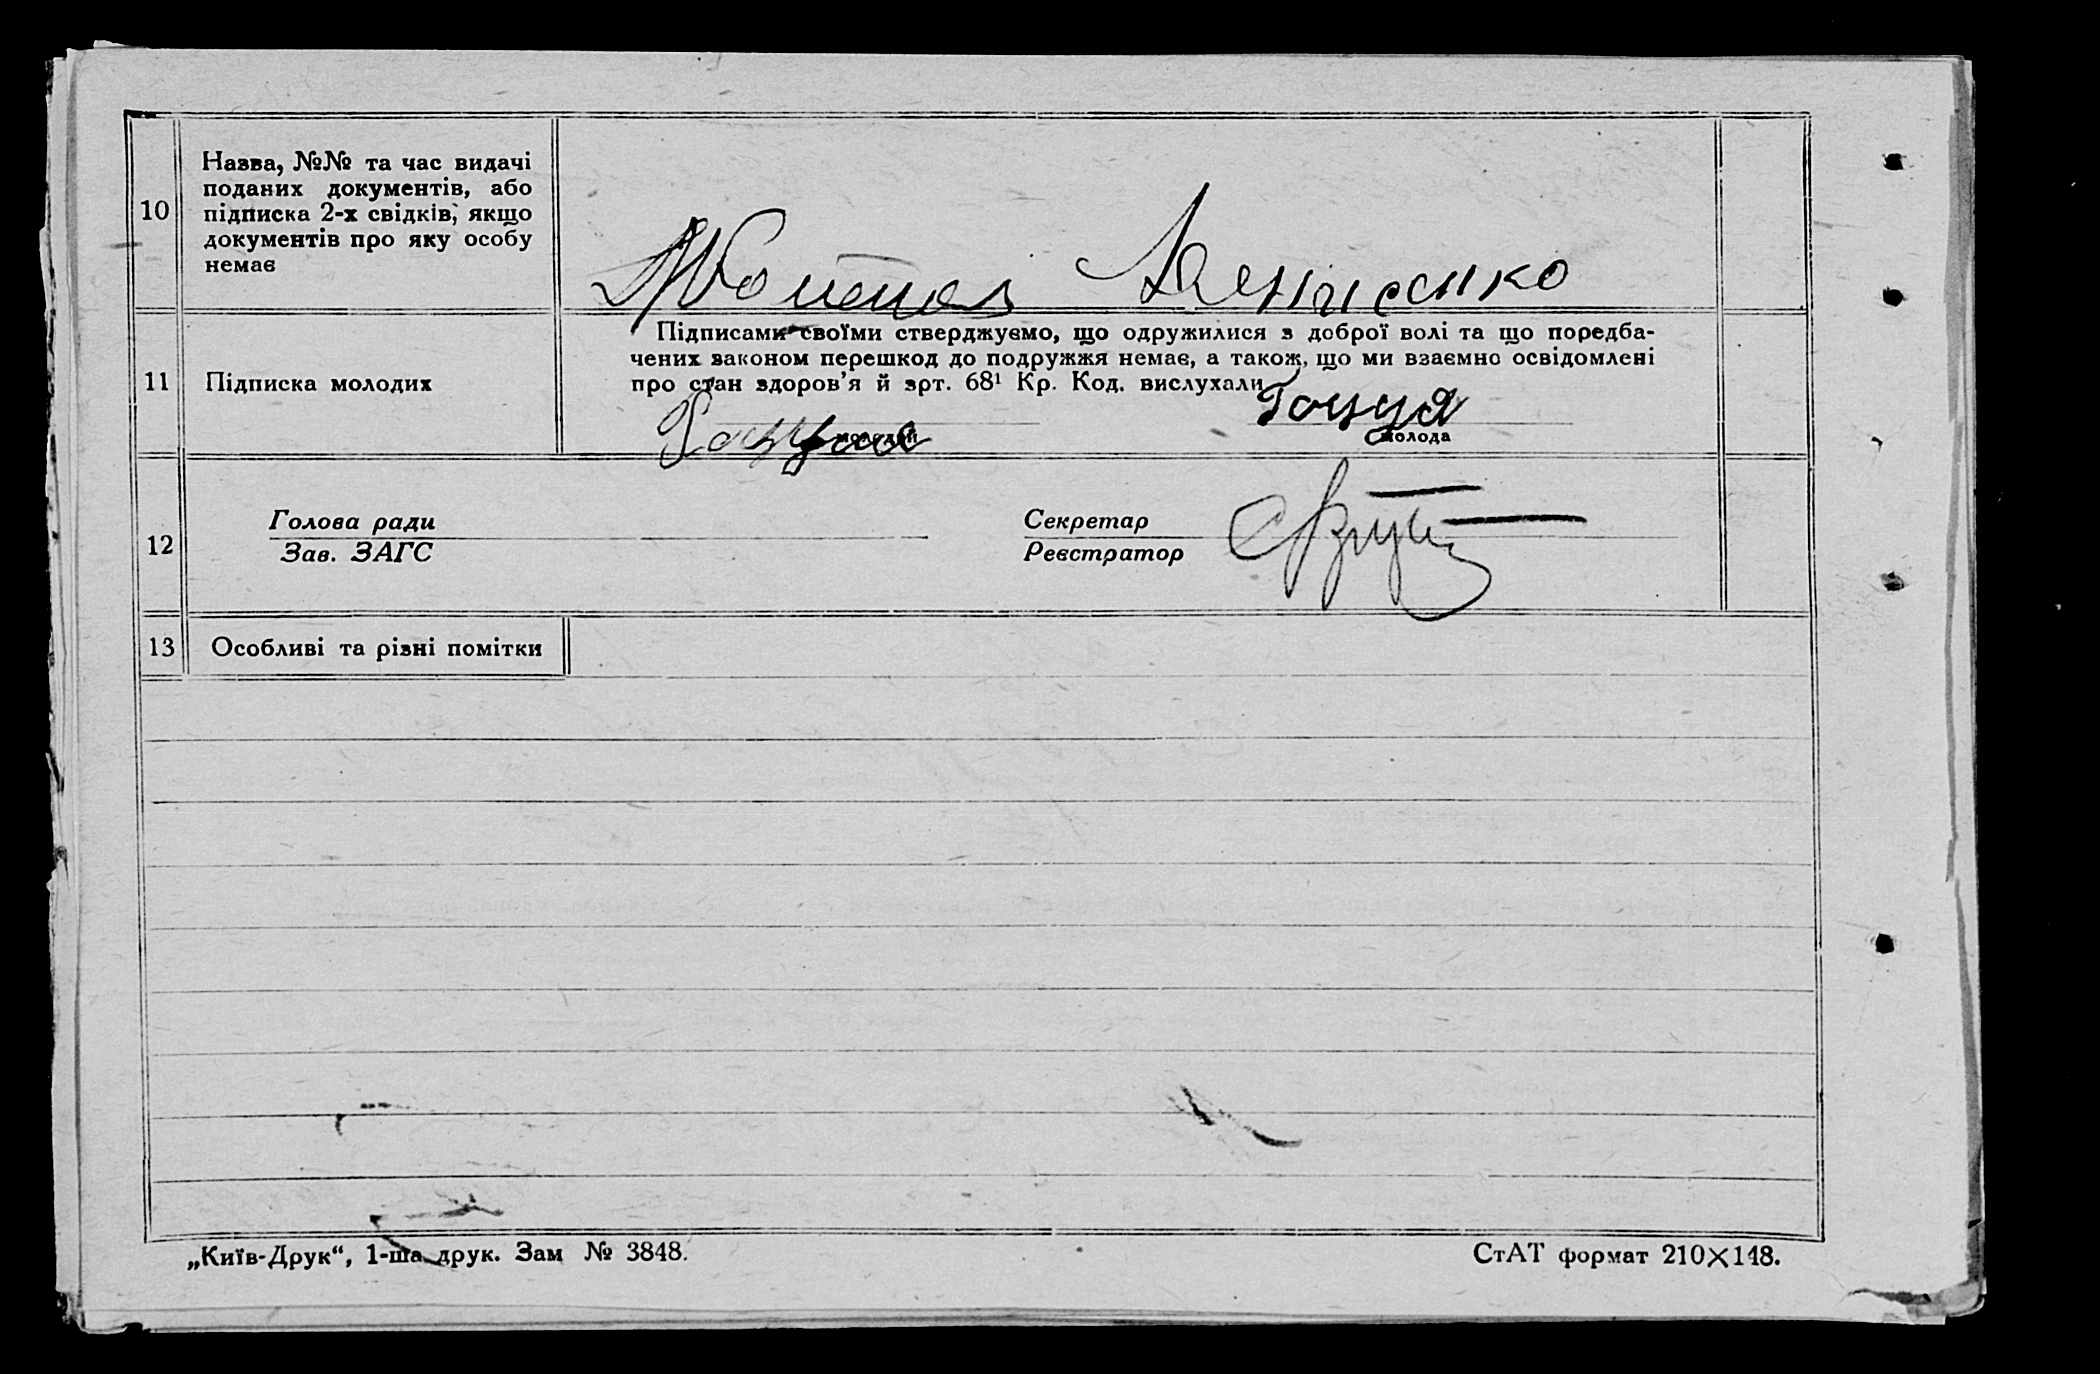 10
Назва, №№ та час видачі
поданих документів, або
підписка 2-х свідків, якщо
документів про яку особу
немає
Денисенко
11
Підписка молодих
Підписами своїми стверджуємо, що одружилися з доброї волі та що поредба-
чених законом перешкод до подружжя немає, а також, що ми взаємно освідомлені
про стан здоров’я й зрт. 68¹ Кр. Код. вислухали
Гоцуя
молодий
молода
12
Голова ради
Зав. ЗАГС
Секретар
Реєстратор
13
Особливі та різні помітки
„Київ-Друк“, 1-ша друк. Зам № 3848.
СтАТ формат 210×148.